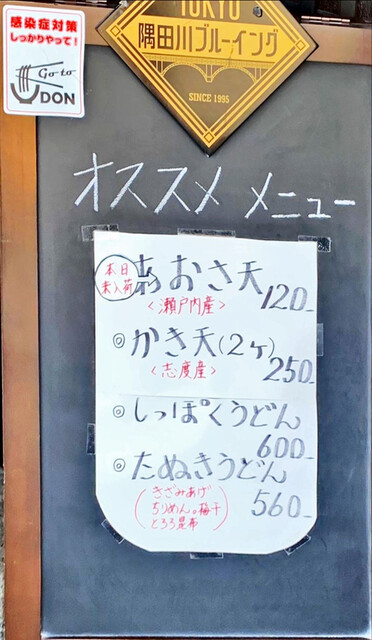 感染症対策
しっかりやって!
Go to
UDON
TOKYO
隅田川ブルーイング
SINCE 1995
オススメ メニュー
本日
未入荷
あおさ天
<瀬戸内産>
120-
◎かき天(2ヶ)
<志度産>
250-
◎しっぽくうどん
600-
◎たぬきうどん
(きざみあげ
ちりめん。梅干
とろろ昆布)
560-